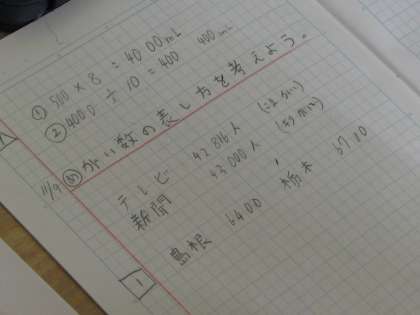 ① 500 × 8 = 4000mL
② 4000 ÷ 10 = 400 400mL
11/9 めがい数の表し方を考えよう。
テレビ 42816人 (こまかい)
新聞 43000人
島根 6400 栃木 6700
1